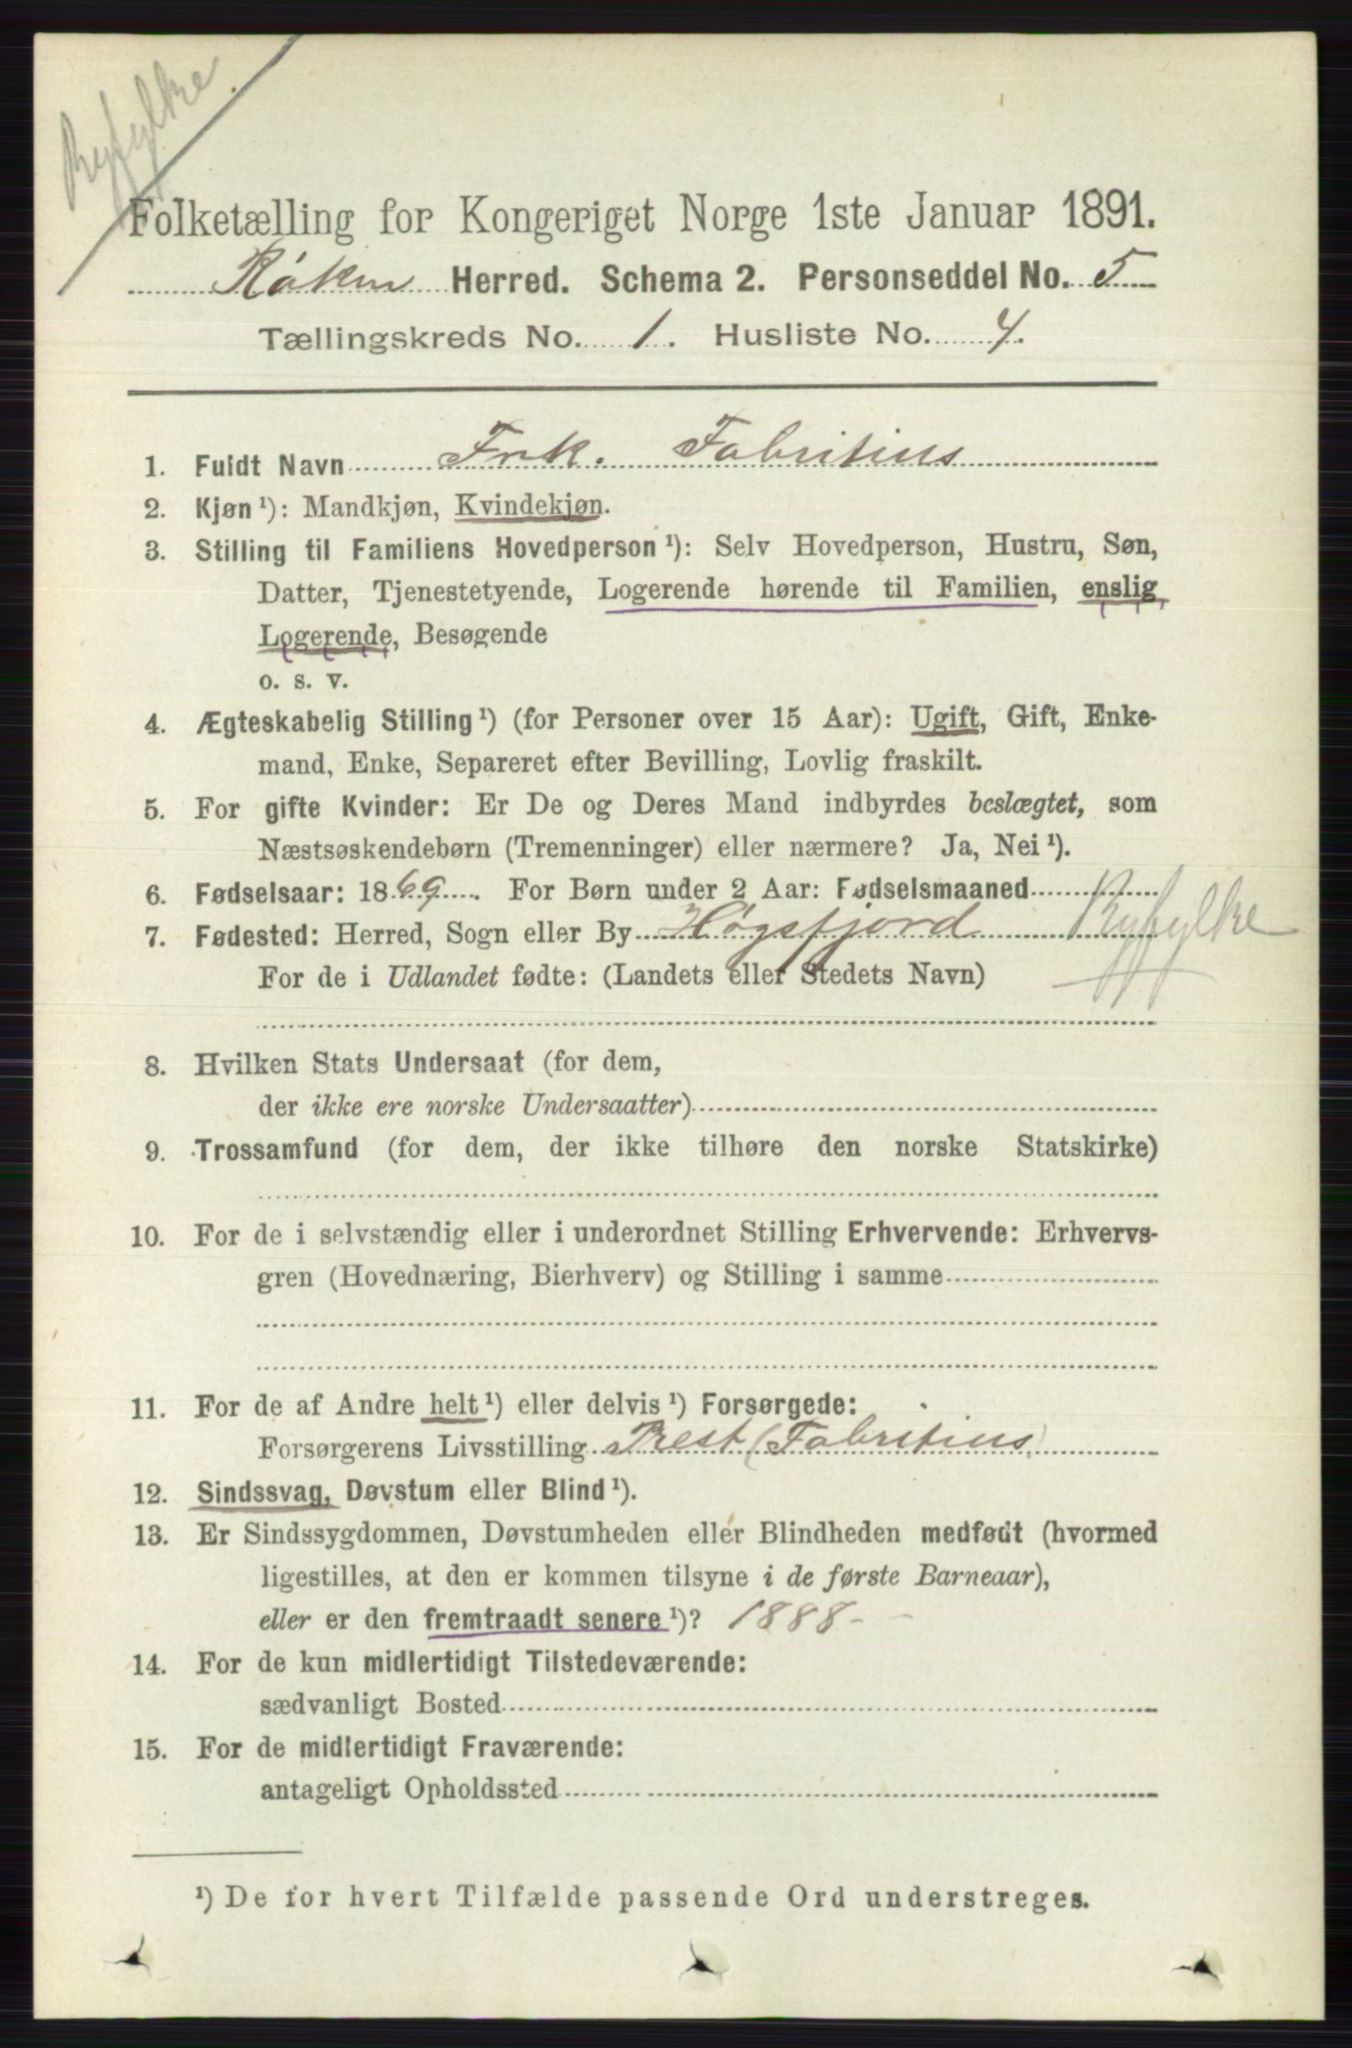 Ryfylke
Folketælling for Kongeriget Norge 1ste Januar 1891.
Røken Herred. Schema 2. Personseddel No. 5
Tællingskreds No. 1. Husliste No. 4.
1. Fuldt Navn Frk. Fabritius
2. Kjøn ¹): Mandkjøn, Kvindekjøn.
3. Stilling til Familiens Hovedperson ¹): Selv Hovedperson, Hustru, Søn,
Datter, Tjenestetyende, Logerende hørende til Familien, enslig
Logerende, Besøgende
o. s. v.
4. Ægteskabelig Stilling ¹) (for Personer over 15 Aar): Ugift, Gift, Enke-
mand, Enke, Separeret efter Bevilling, Lovlig fraskilt.
5. For gifte Kvinder: Er De og Deres Mand indbyrdes beslægtet, som
Næstsøskendebørn (Tremenninger) eller nærmere? Ja, Nei ¹).
6. Fødselsaar: 1869. For Børn under 2 Aar: Fødselsmaaned
7. Fødested: Herred, Sogn eller By Høgsfjord Ryfylke
For de i Udlandet fødte: (Landets eller Stedets Navn)
8. Hvilken Stats Undersaat (for dem,
der ikke ere norske Undersaatter)
9. Trossamfund (for dem, der ikke tilhøre den norske Statskirke)
10. For de i selvstændig eller i underordnet Stilling Erhvervende: Erhvervs-
gren (Hovednæring, Bierhverv) og Stilling i samme
11. For de af Andre helt ¹) eller delvis ¹) Forsørgede:
Forsørgerens Livsstilling Prest (Fabritius)
12. Sindssvag, Døvstum eller Blind ¹).
13. Er Sindssygdommen, Døvstumheden eller Blindheden medfødt (hvormed
ligestilles, at den er kommen tilsyne i de første Barneaar),
eller er den fremtraadt senere ¹)? 1888-
14. For de kun midlertidigt Tilstedeværende:
sædvanligt Bosted
15. For de midlertidigt Fraværende:
antageligt Opholdssted
¹) De for hvert Tilfælde passende Ord understreges.